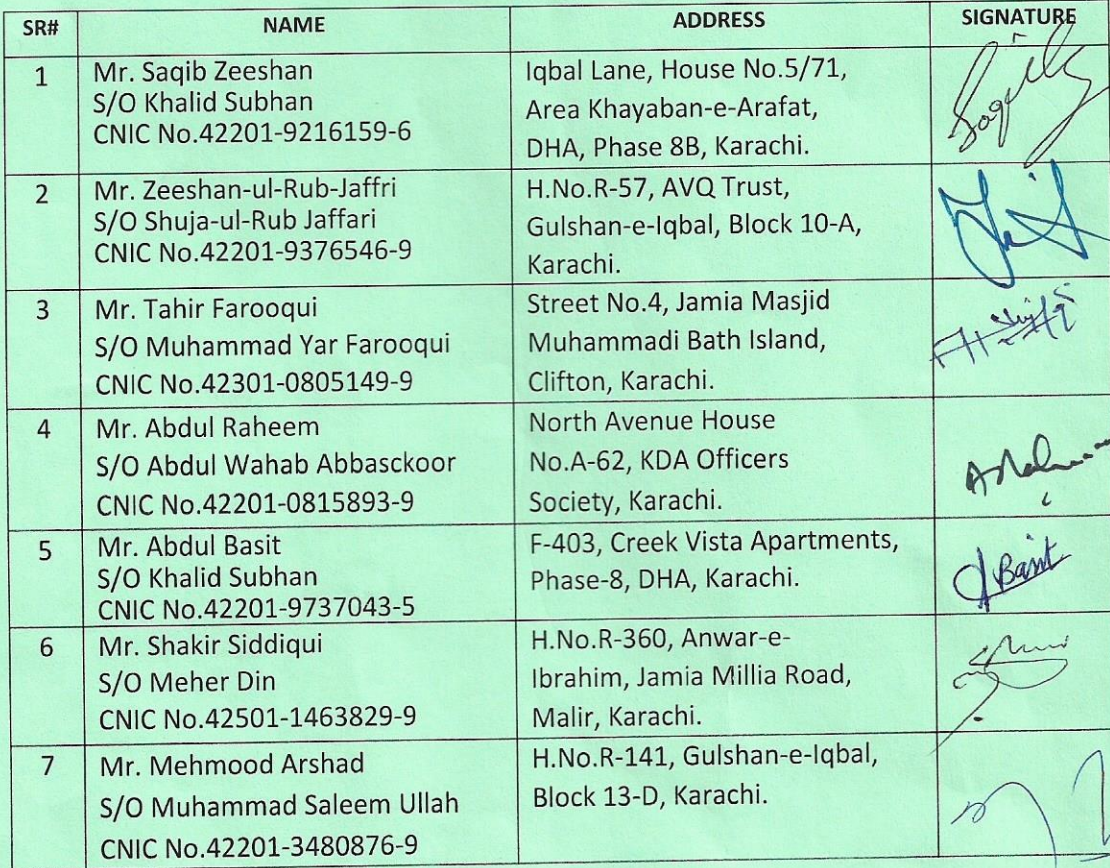 SR# NAME ADDRESS SIGNATURE
1
Mr. Saqib Zeeshan
S/O Khalid Subhan
CNIC No.42201-9216159-6
Iqbal Lane, House No.5/71,
Area Khayaban-e-Arafat,
DHA, Phase 8B, Karachi.
2
Mr. Zeeshan-ul-Rub-Jaffri
S/O Shuja-ul-Rub Jaffari
CNIC No.42201-9376546-9
H.No.R-57, AVQ Trust,
Gulshan-e-Iqbal, Block 10-A,
Karachi.
3
Mr. Tahir Farooqui
S/O Muhammad Yar Farooqui
CNIC No.42301-0805149-9
Street No.4, Jamia Masjid
Muhammadi Bath Island,
Clifton, Karachi.
4
Mr. Abdul Raheem
S/O Abdul Wahab Abbasckoor
CNIC No.42201-0815893-9
North Avenue House
No.A-62, KDA Officers
Society, Karachi.
5
Mr. Abdul Basit
S/O Khalid Subhan
CNIC No.42201-9737043-5
F-403, Creek Vista Apartments,
Phase-8, DHA, Karachi.
A Basit
6
Mr. Shakir Siddiqui
S/O Meher Din
CNIC No.42501-1463829-9
H.No.R-360, Anwar-e-
Ibrahim, Jamia Millia Road,
Malir, Karachi.
7
Mr. Mehmood Arshad
S/O Muhammad Saleem Ullah
CNIC No.42201-3480876-9
H.No.R-141, Gulshan-e-Iqbal,
Block 13-D, Karachi.